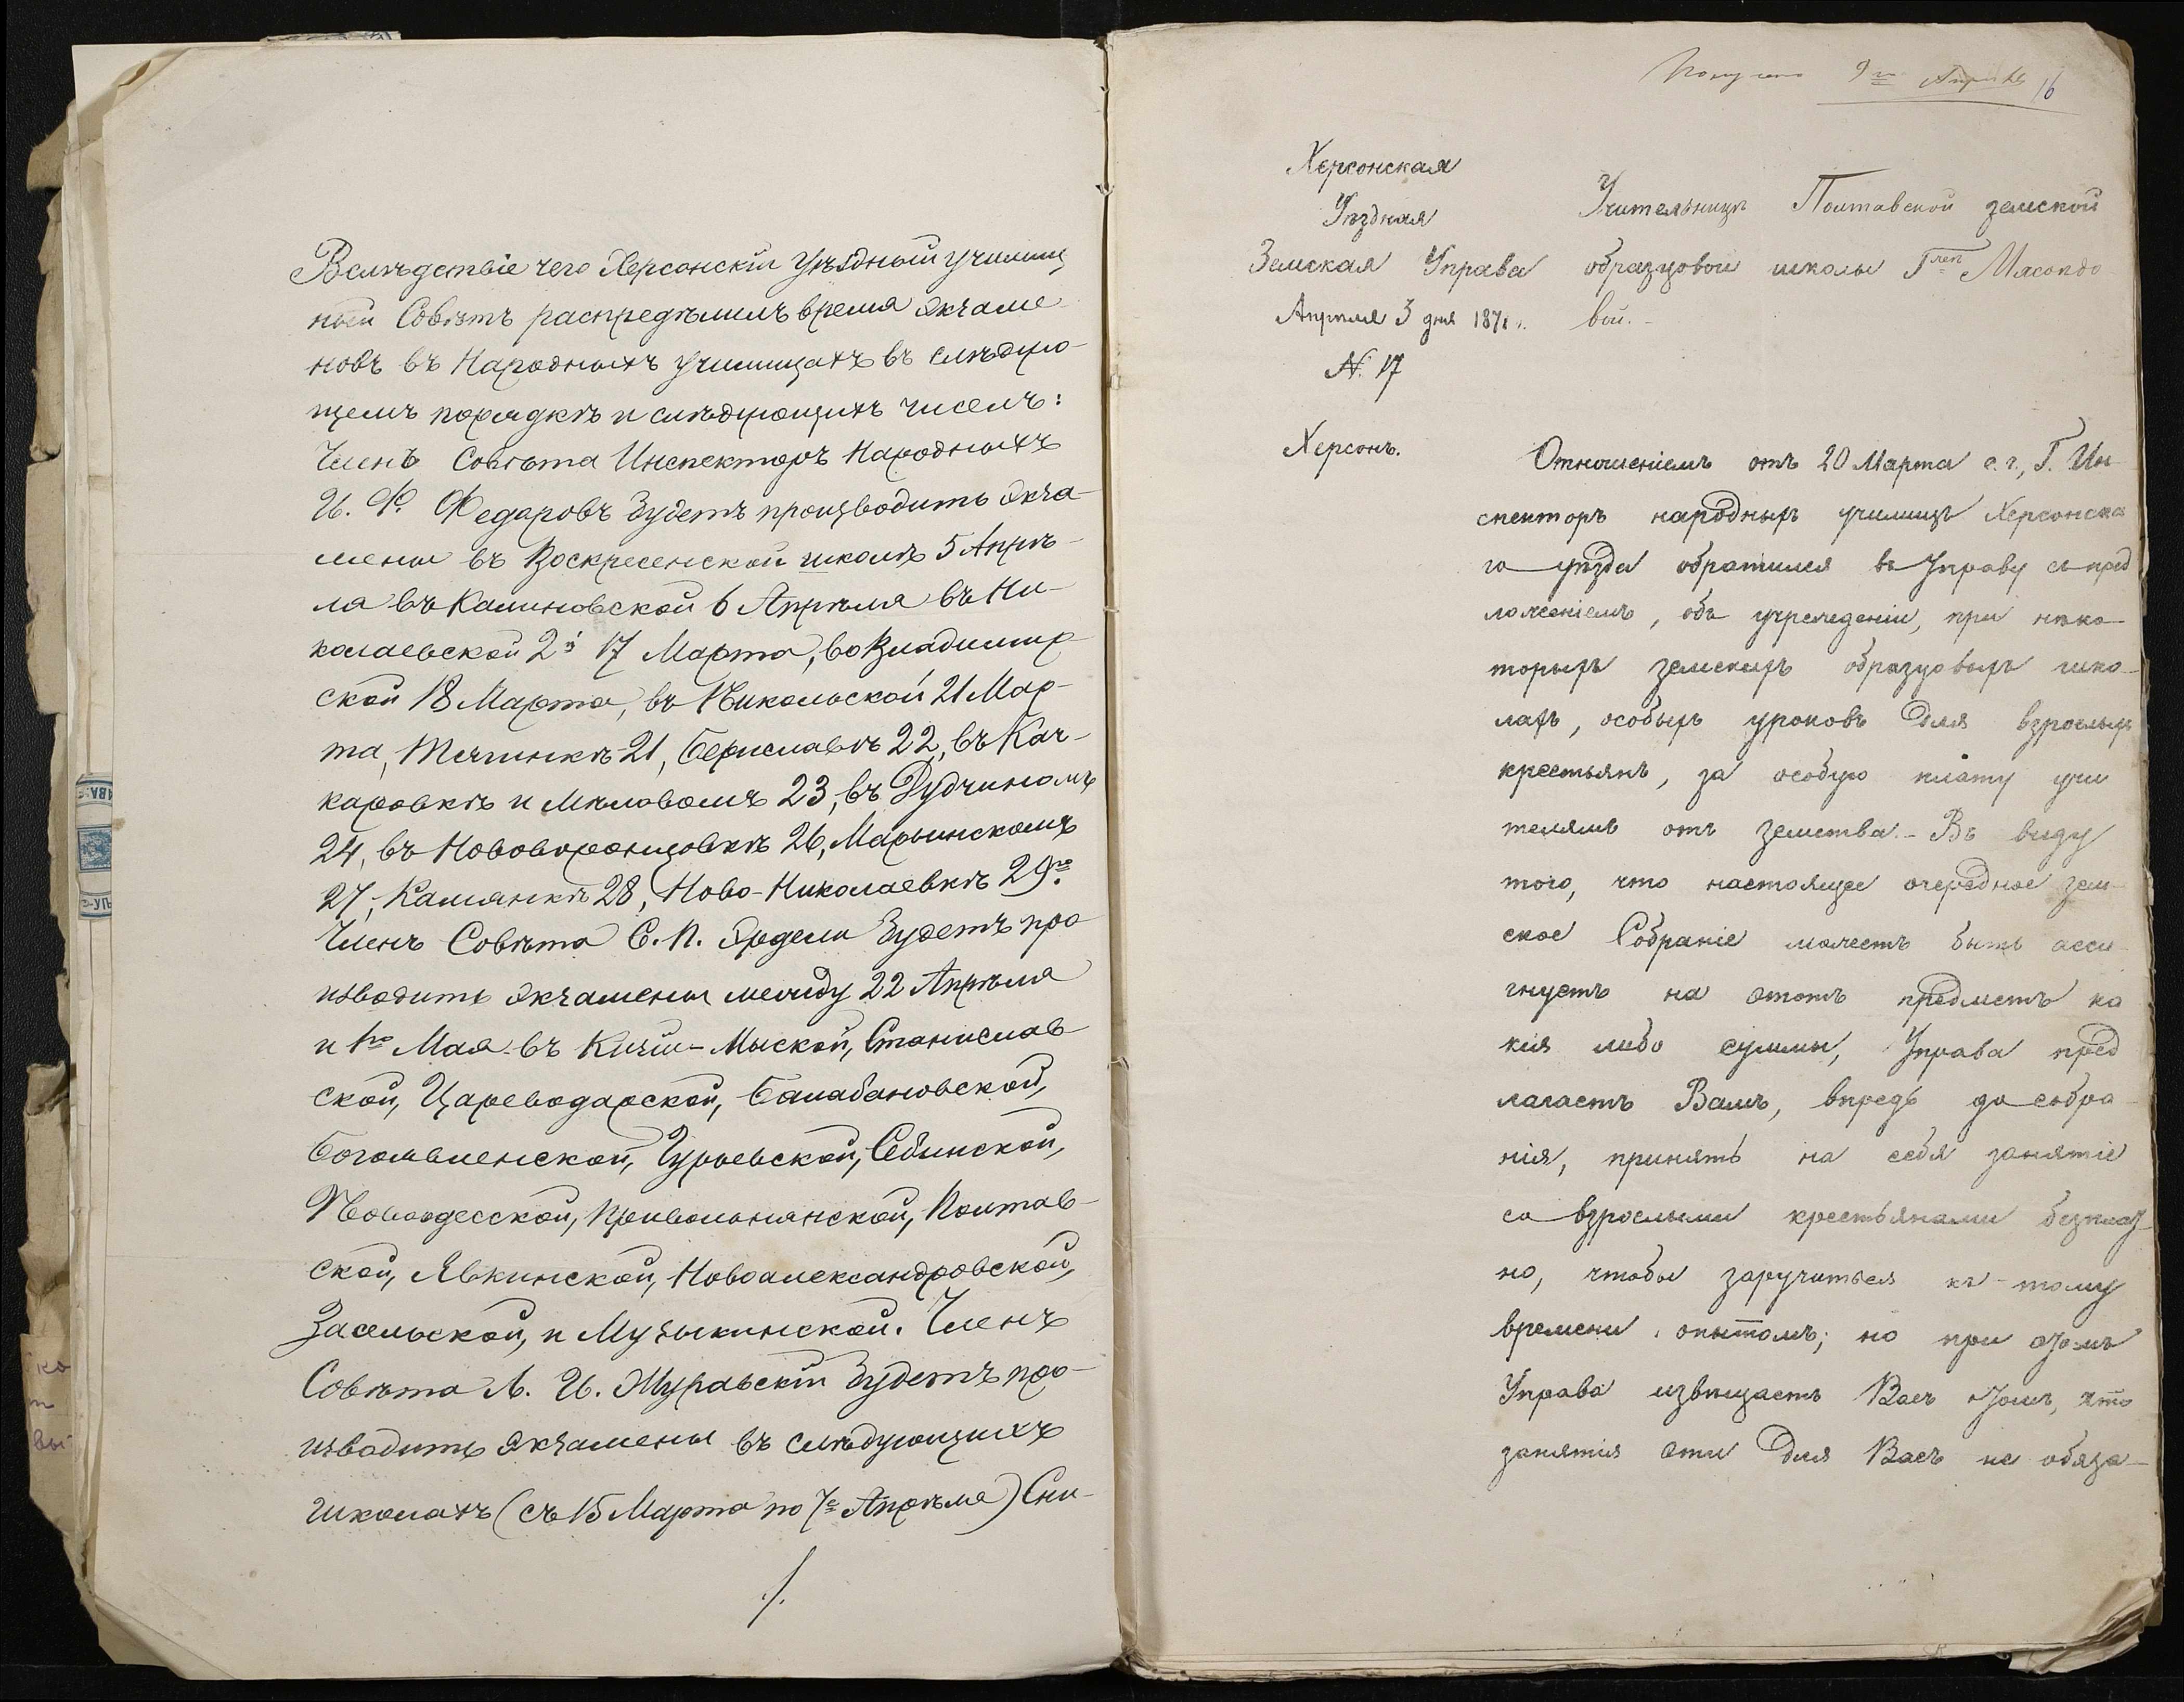 Вслѣдствіе чего Херсонскій Уѣздный училищ
ный Совѣтъ распредѣлилъ время экзаме
новъ въ Народныхъ училищахъ въ слѣдую-
щемъ порядкѣ и слѣдующихъ числъ:
Членъ Совѣта Инспекторъ Народныхъ
И. Ф. Федаровъ будетъ производить экза-
мены въ Воскресенской школѣ 5 Апрѣ-
ля въ Калиновской 6 Апрѣля въ Ни-
колаевской 2й 17 Марта, во Владимир
ской 18 Марта, въ Никольской 21 Мар-
та, Тягинкѣ 21, Бериславѣ 22, въ Кач-
каровкѣ и Миловомъ 23, въ Дудчиномъ
24, въ Нововоронцовкѣ 26, Марьинскомъ
27, Камянкѣ 28, Ново-Николаевкѣ 29го.
Членъ Совѣта С. П. Эрдели будетъ про
изводить экзамены между 22 Апрѣля
и 1го Мая въ Кизи-Мыской, Станислав
ской, Цареводарской, Балабановской,
Богоявленской, Гурьевской, Себинской,
Новоодесской, Привольнянской, Полтав-
ской, Явкинской, Новоалександровской,
Засельской, и Музыкинской. Членъ
Совѣта Л. И. Муравскій будетъ про-
изводить экзамены въ слѣдующихъ
школахъ (съ 15 Марта по 7е Апрѣля) Сни-
./.
Получено 9го Апрѣля 16
Херсонская
Уѣздная
Земская Управа
Апрѣля 3 дня 1871 г.
N. 17
Херсонъ.
Учительницѣ Полтавской земской
образцовой школы Г-жѣ Мясоѣдо-
вой.-
Отношеніемъ отъ 20 Марта с. г., Г. Ин-
спекторъ народныхъ училищъ Херсонска
го уѣзда обратился въ Управу съ пред
ложеніемъ, объ учрежденіи, при нѣко-
торыхъ земскихъ образцовыхъ шко-
лахъ, особыхъ уроковъ для взрослыхъ
крестьянъ, за особую плату учи
телямъ отъ земства.- Въ виду
того, что настоящее очередное зем-
ское Собраніе можетъ быть асси-
гнуетъ на этотъ предметъ ка
кія либо суммы, Управа пред
лагаетъ Вамъ, впредь до собра-
нія, принять на себя занятіе
со взрослыми крестьянами безплат-
но, чтобы заручиться къ-тому
времени опытомъ; но при этомъ
Управа извѣщаетъ Васъ о томъ, что
занятія эти для Васъ не обяза-